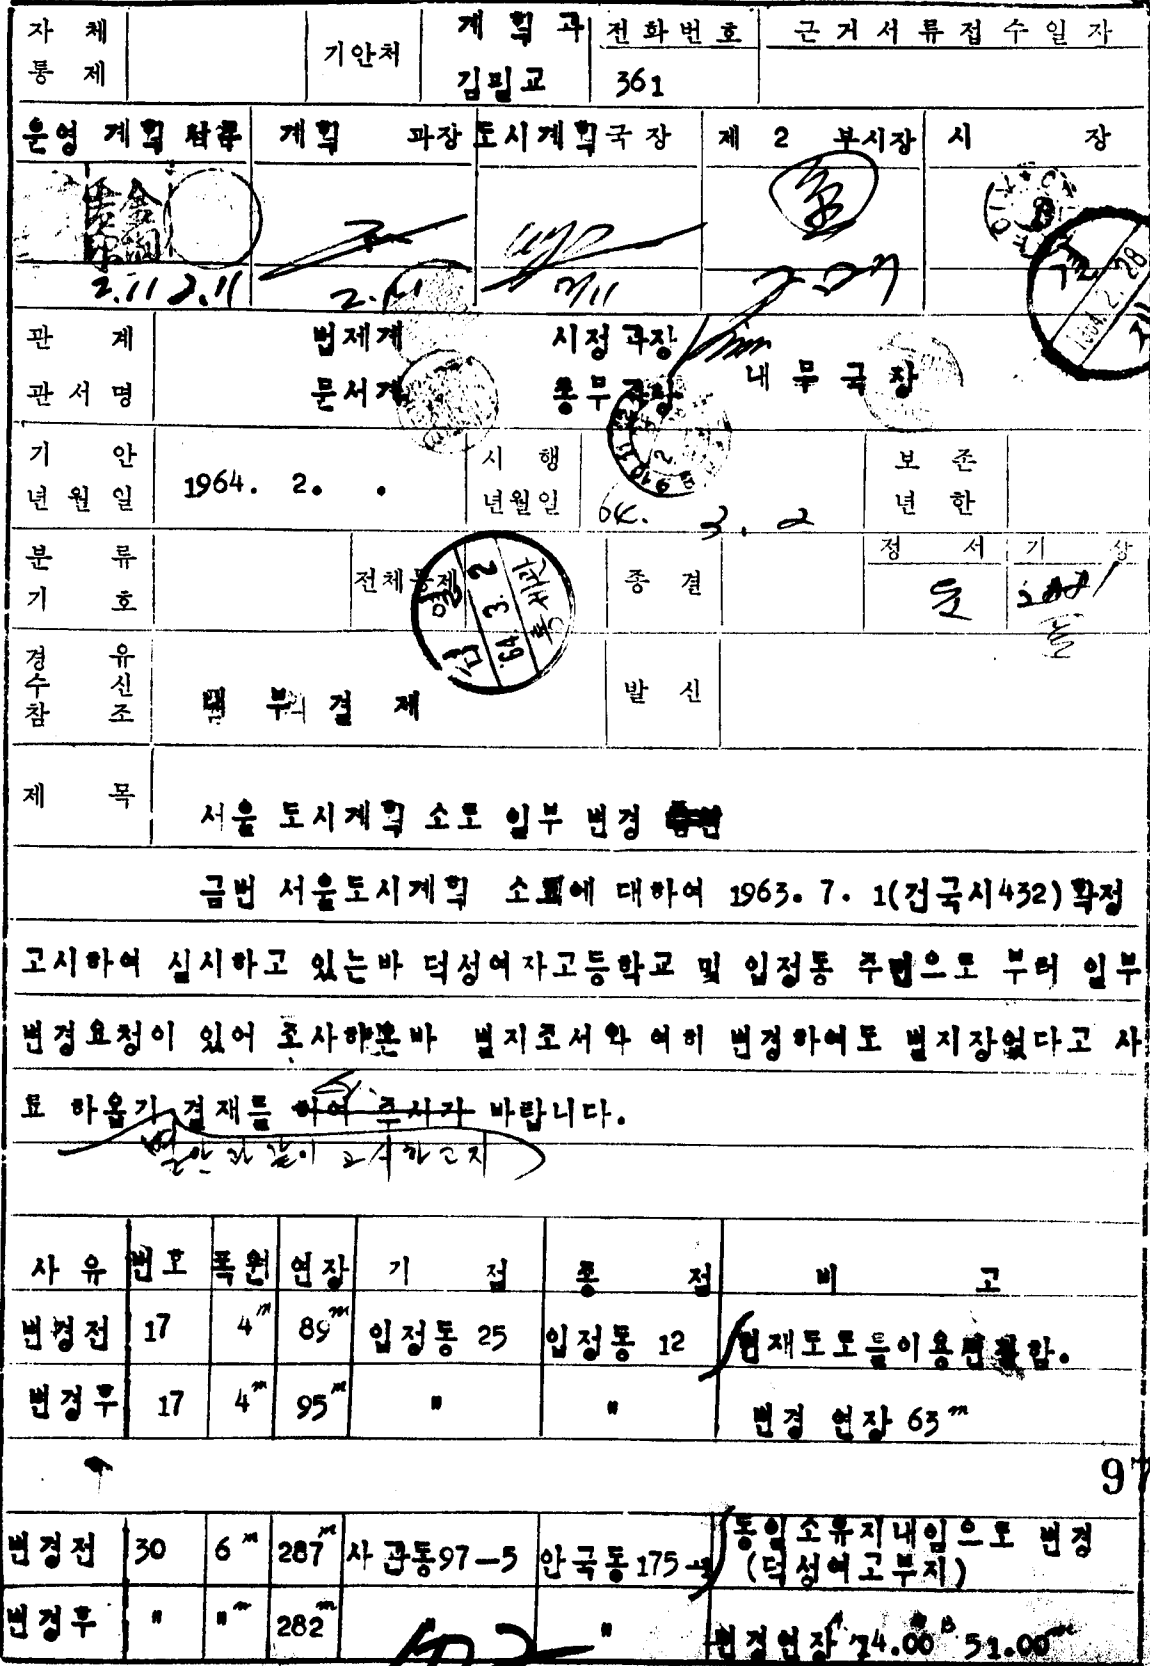 자 체 통 제
기안처
계 획 과
김필교
전 화 번 호
361
근 거 서 류 접 수 일 자
운영 계획
계획 과장
도시계획국장
제 2 부시장
시 장
2.11 2.11
2.11
2/11
2.27
1964.2.28
관 계 관서명
법제계
문서계
시정과장
총무과장
내무국장
기 안 년월일
1964. 2. .
시 행 년월일
64. 3. 2
보 존 년 한
분 류 기 호
전체통제
64. 3. 2
종 결
정 서
기 상
경 유 수 신 참 조
내부결제
발 신
제 목
서울 도시계획 소로 일부 변경
금번 서울도시계획 소로에 대하여 1963. 7. 1(건국시432)확정
고시하여 실시하고 있는바 덕성여자고등학교 및 입정동 주민으로 부터 일부
변경요청이 있어 조사하온바 별지조서와 여히 변경하여도 별지장없다고 사
료 하옵기 결재를 하여 주시기 바랍니다.
별안과 같이 고시하고저
사 유 번호 폭원 연장 기 점 종 점 비 고
변경전 17 4m 89m 입정동 25 입정동 12 현재도로를이용변경함.
변경후 17 4m 95m " " 변경 연장 63m
97
변경전 30 6m 287m 사관동97-5 안국동175- 동일소유지내임으로 변경
(덕성여고부지)
변경후 " "m 282m " " 변경연장 A 74.00m B 51.00m